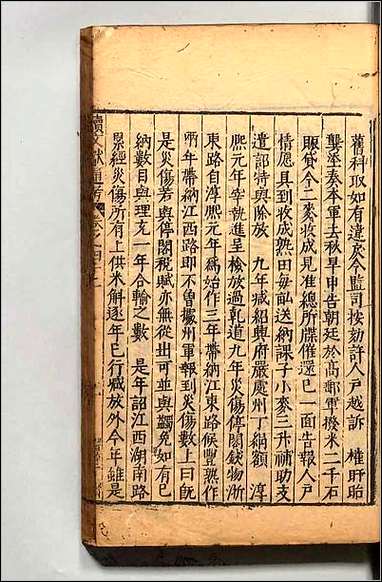 舊科取如有違戾令監司按劾許人戶越訴　權盱眙
龔鋈奏本軍去秋旱申告朝廷於高郵軍撥米二千石
賑貸今二麥收成見准總所牒催還已一面告報人戶
情愿具到收成熟田每畝送納課子小麥三升補助支
遣詔特與除放　九年減紹興府嚴處州丁絹額　淳
熙元年宰執進呈檢放過乾道九年災傷停閣錢物浙
東路自淳熙元年爲始作三年帶納江東路候豐熟作
兩年帶納江西路即不曾據州軍報到災傷數上曰既
是災傷若與停閣稅賦亦無從出可並與蠲免如有已
納數目與理充一年合輸之數　是年詔江西湖南路
累經災傷所有上供米斛逐年已行減放外今年雖是
續文獻通考